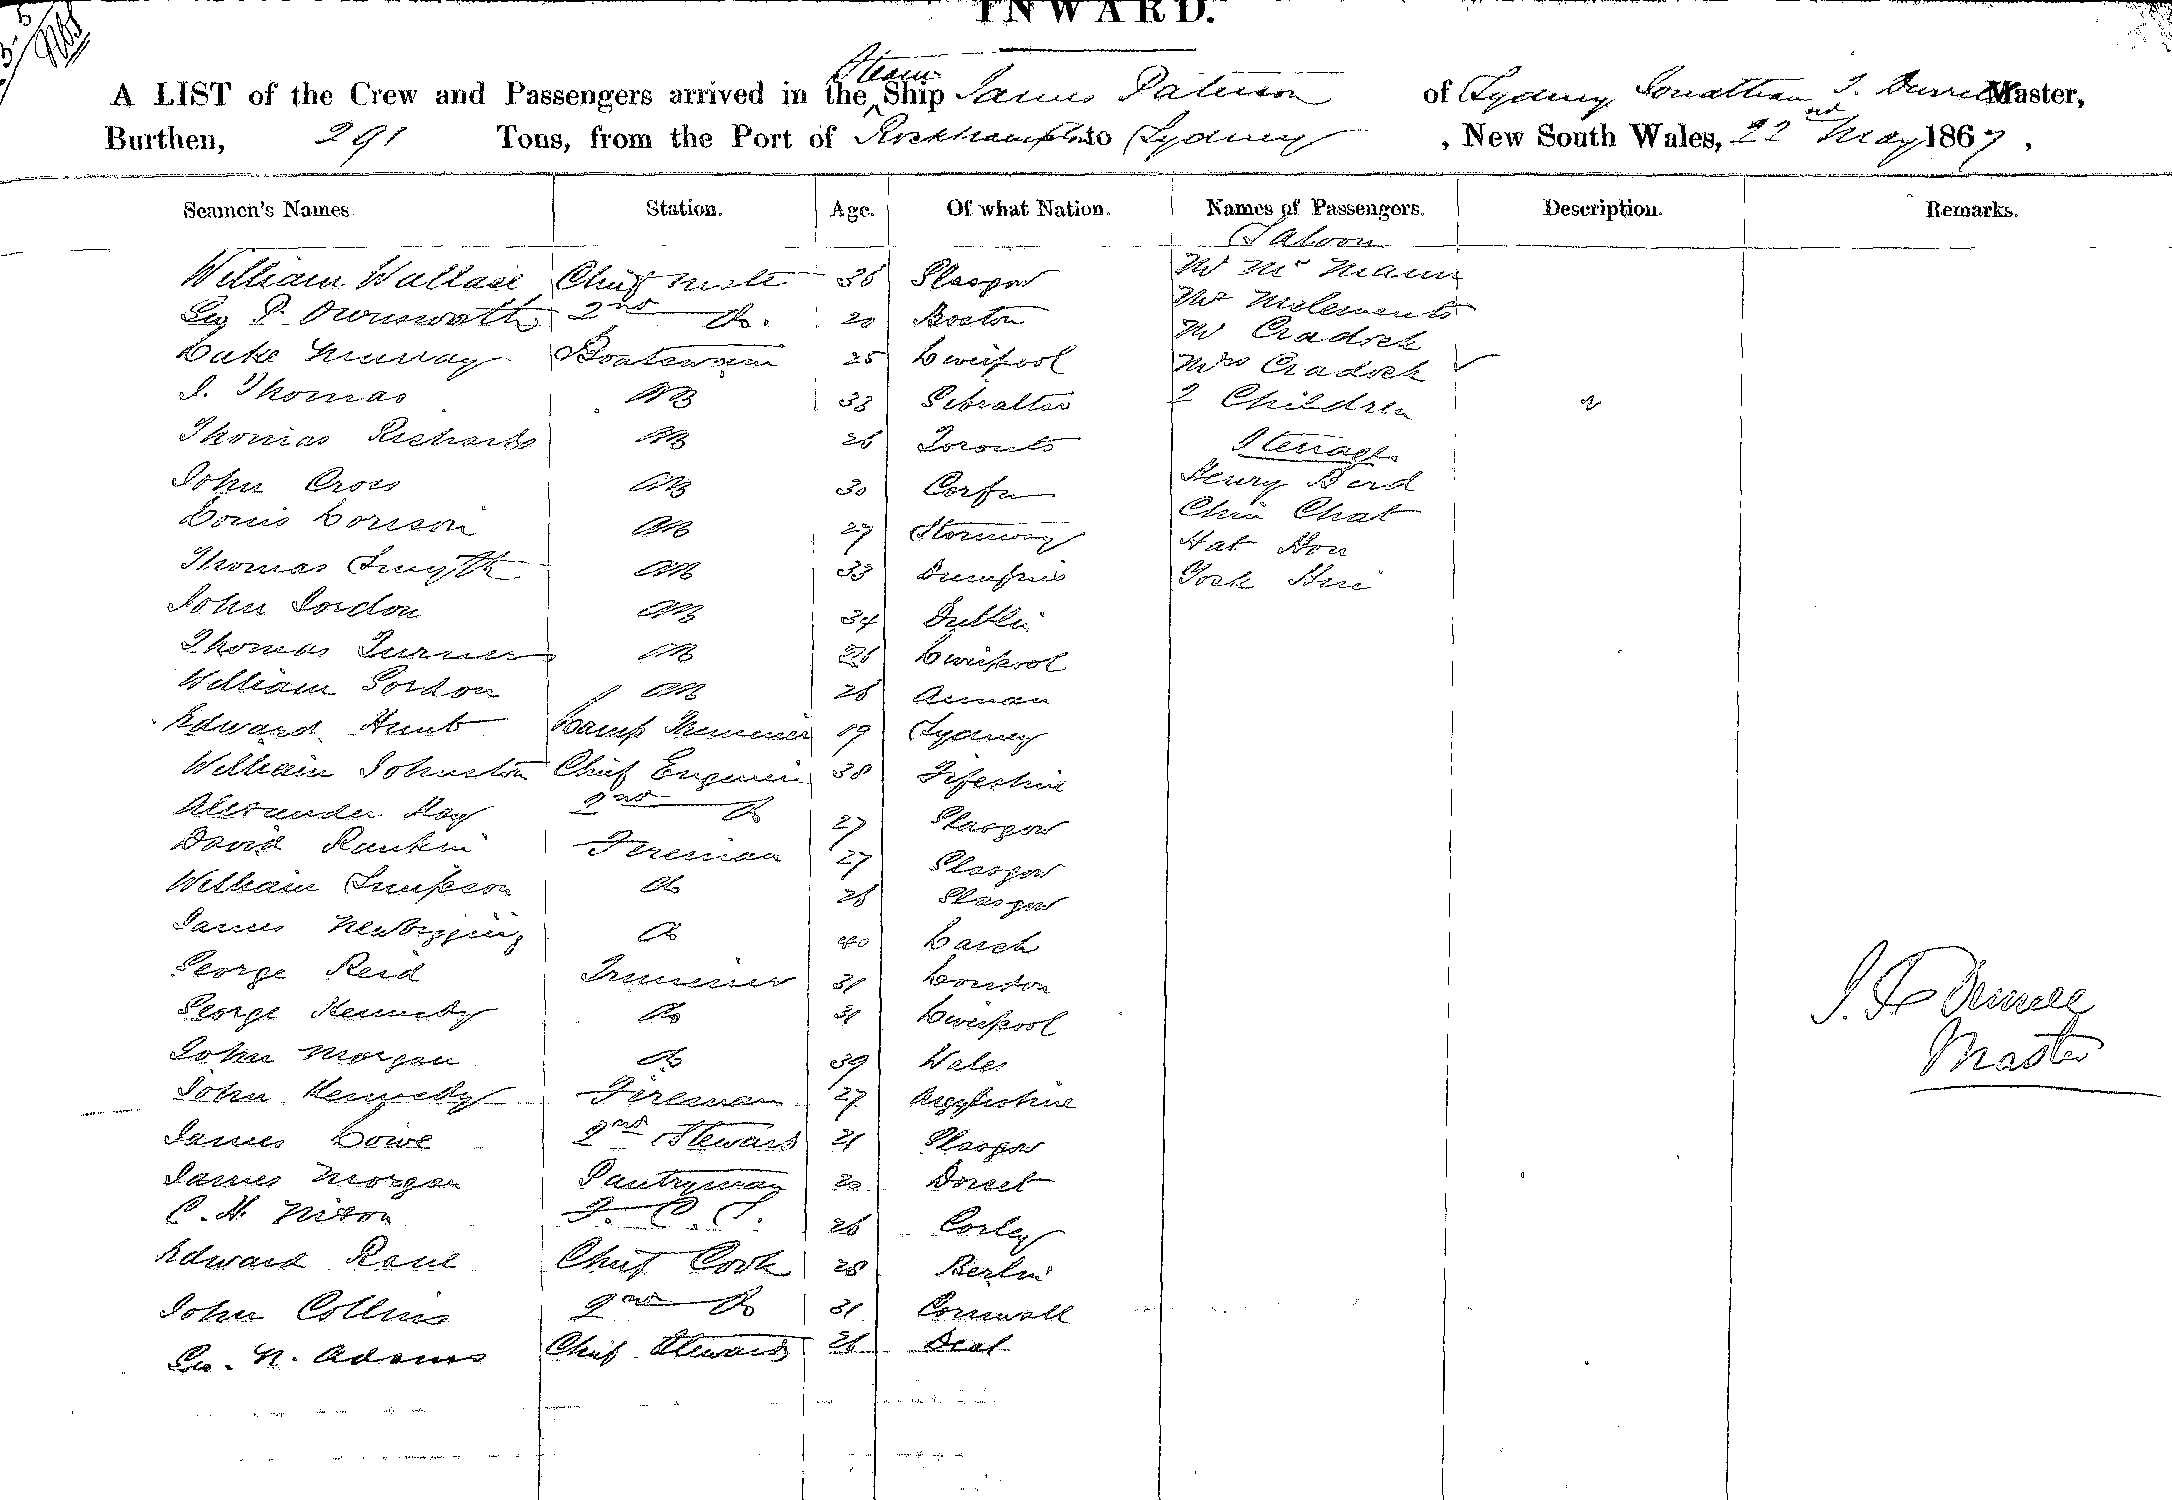 INWARD.
A LIST of the Crew and Passengers arrived in the Steam Ship James Paterson of Sydney Jonathan T. Durrell Master,
Burthen, 291 Tons, from the Port of Rockhampton to Sydney, New South Wales, 22nd May 1867,
Seamen's Names. Station. Age. Of what Nation. Names of Passengers. Description. Remarks.
Saloon
William Wallace Chief Mate 36 Glasgow Mr Mc Mann
Geo P. 2nd do. 20 Boston Mr
Luke Murray Boatswain 25 Liverpool Mr Cradock
J. Thomas AB 33 Gibralter Mrs Cradock
2 Children 2
Thomas Richards AB 26 Toronto Steerage
John Cross AB 30 Corfu Henry Bird
Louis AB 27 Chin Chat
Thomas Smyth AB 33 Dumfries Hat Hon
John Gordon AB 34 Dublin
Thomas Turner AB 26 Liverpool
William Gordon AB 26 Annan
Edward Hunt Lamp Trimmer 19 Sydney
William Johnston Chief Engineer 38 Fifeshire
Alexander Hay 2nd do 27 Glasgow
David Rankin Fireman 27 Glasgow
William Simpson do 26 Glasgow
James Newbigging do 40
George Reid Trimmer 31 London
George Kennedy do 31 Liverpool
John Morgan do 39 Wales
John Kennedy Fireman 27 Argyleshire
James Lowe 2nd Steward 21 Glasgow
James Morgan Pantryman 20 Dorset
C. H. Nixon F. C. S. 26
Edward Chief Cook 28 Berlin
John Collins 2nd do 31 Cornwall
Geo. N. Adams Chief Steward 26 Deal
J. T. Durrell
Master